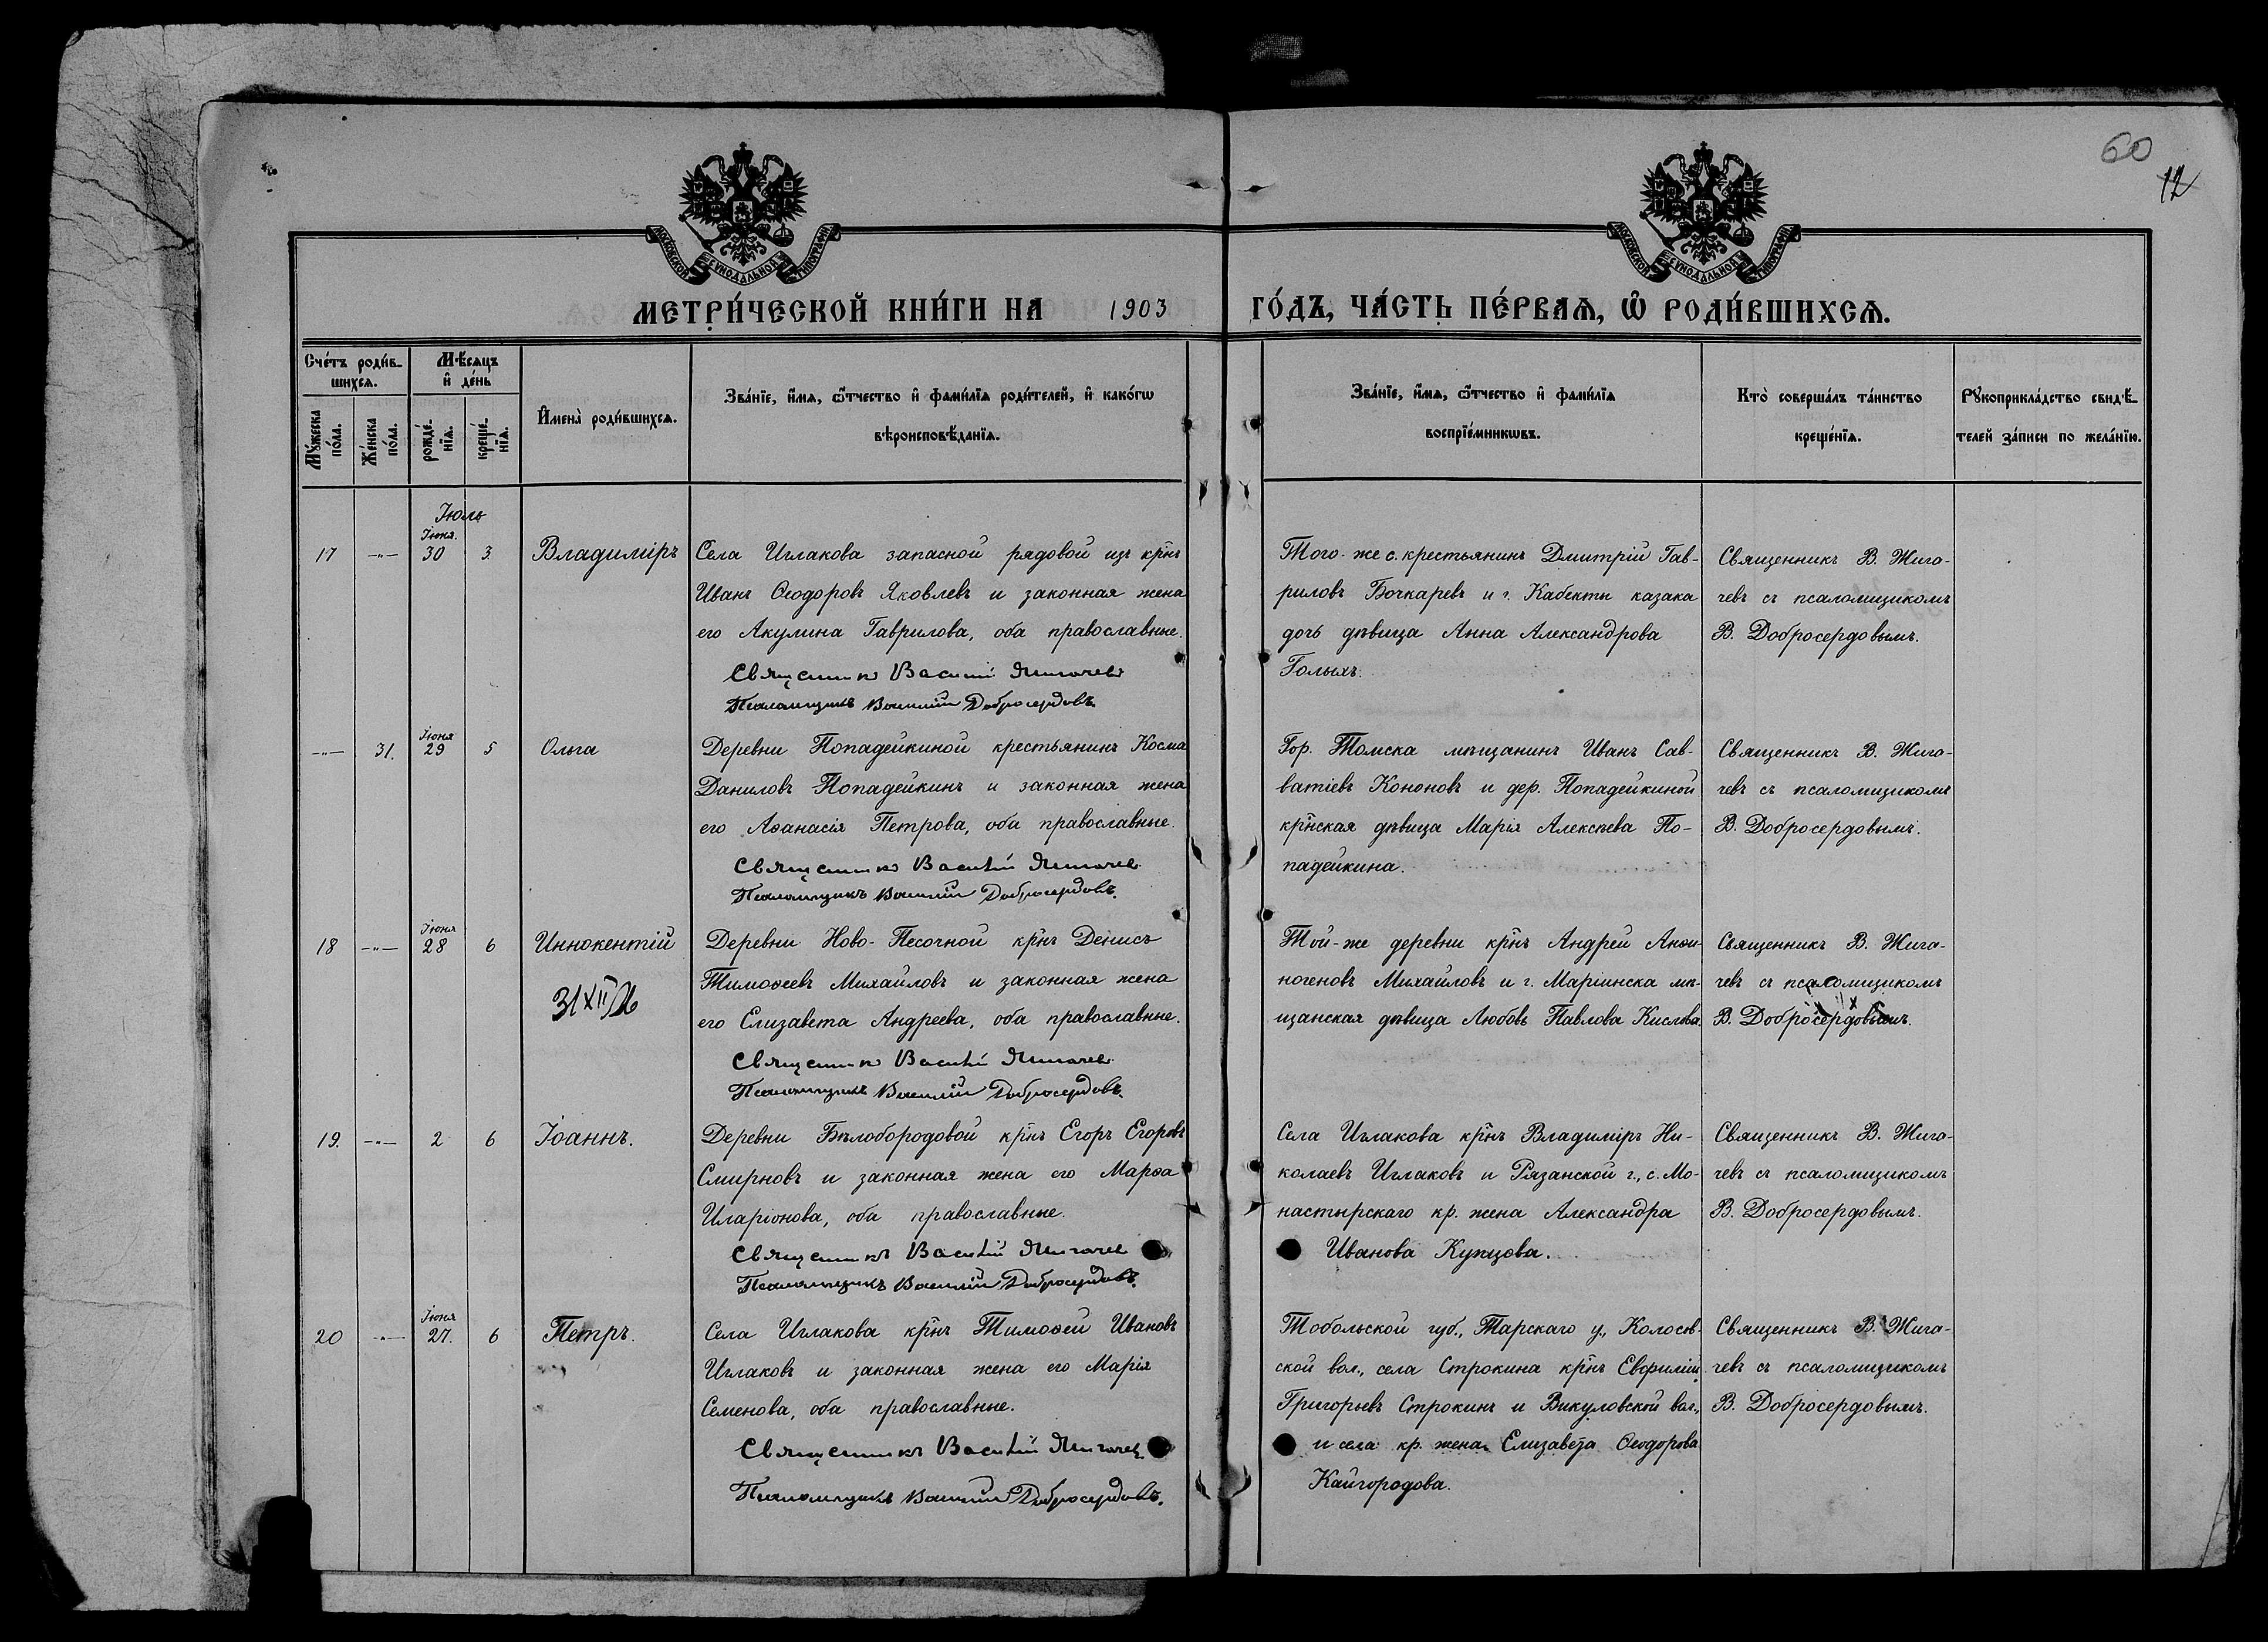 60
12
МОСКОВСКОЙ СѴНОДАЛЬНОЙ ТИПОГРАФІИ
МОСКОВСКОЙ СѴНОДАЛЬНОЙ ТИПОГРАФІИ
МЕТРИ́ЧЕСКОЙ КНИ́ГИ НА 1903 ГО́ДЪ, ЧА́СТЬ ПЕ́РВАѦ, Ѽ РОДИ́ВШИХСѦ.
Сче́тъ роди́в-
шихсѧ.
Мꙋ́жеска
по́ла.
Же́нска
по́ла.
Мѣ́сяцъ
и҆ де́нь
рожде́-
нїѧ.
креще́-
нїѧ.
И҆мена̀ роди́вшихсѧ.
Зва́нїе, и҆́мѧ, ѻ҆́тчество и҆ фами́лїѧ роди́телей, и҆ како́гѡ
вѣроисповѣ́данїѧ.
Зва́нїе, и҆́мѧ, ѻ҆́тчество и҆ фами́лїѧ
воспрїе́мникѡвъ.
Кто̀ соверша́лъ та́инство
креще́нїѧ.
Рꙋкоприкла́дство свидѣ́-
телей за́писи по жела́нїю.
Іюль
Іюня.
17 -"- 30 3. Владиміръ
Села Иглакова запасной рядовой изъ кр̃нъ
Иванъ Ѳеодоровъ Яковлевъ и законная жена
его Акулина Гаврилова, оба православные.
Священникъ Василій Жигачевъ
Псаломщикъ Василій Добросердовъ.
Того-же с. крестьянинъ Дмитрій Гав-
риловъ Бочкаревъ и г. Кабекты казака
дочь дѣвица Анна Александрова
Голыхъ.
Священникъ В. Жига-
чевъ съ псаломщикомъ
В. Добросердовымъ.
Іюня
-"- 31. 29 5 Ольга
Деревни Попадейкиной крестьянинъ Косма
Даниловъ Попадейкинъ и законная жена
его Аѳанасія Петрова, оба православные.
Священникъ Василій Жигачевъ
Псаломщикъ Василій Добросердовъ.
Гор. Томска мѣщанинъ Иванъ Сав-
ватіевъ Кононовъ и дер. Попадейкиной
кр̃нская дѣвица Марія Алексѣева По-
падейкина.
Священникъ В. Жига-
чевъ съ псаломщикомъ
В. Добросердовымъ.
Іюня
18 -"- 28 6 Иннокентій
31 XII
Деревни Ново-Песочной кр̃нъ Денисъ
Тимоѳеевъ Михайловъ и законная жена
его Елизавета Андреева, оба православные.
Священникъ Василій Жигачевъ
Псаломщикъ Василій Добросердовъ.
Той-же деревни кр̃нъ Андрей Анѳи-
ногеновъ Михайловъ и г. Маріинска мѣ-
щанская дѣвица Любовь Павлова Кислова.
Священникъ В. Жига-
чевъ съ псаломщикомъ
В. Добросердовымъ.
19. -"- 2 6 Іоаннъ.
Деревни Бѣлобородовой кр̃нъ Егоръ Егоровъ
Смирновъ и законная жена его Марѳа
Иларіонова, оба православные.
Священникъ Василій Жигачевъ
Псаломщикъ Василій Добросердовъ.
Села Иглакова кр̃нъ Владиміръ Ни-
колаевъ Иглаковъ и Рязанской г., с. Мо-
настырскаго кр. жена Александра
Иванова Купцова.
Священникъ В. Жига-
чевъ съ псаломщикомъ
В. Добросердовымъ.
Іюня
20 -"- 27. 6 Петръ.
Села Иглакова кр̃нъ Тимоѳей Ивановъ
Иглаковъ и законная жена его Марія
Семенова, оба православные.
Священникъ Василій Жигачевъ
Псаломщикъ Василій Добросердовъ.
Тобольской губ., Тарскаго у., Колосов-
ской вол., села Строкина кр̃нъ Евфимій
Григорьевъ Строкинъ и Викуловской вол.,
и села кр. жена Елизавета Ѳеодорова
Кайгородова.
Священникъ В. Жига-
чевъ съ псаломщикомъ
В. Добросердовымъ.